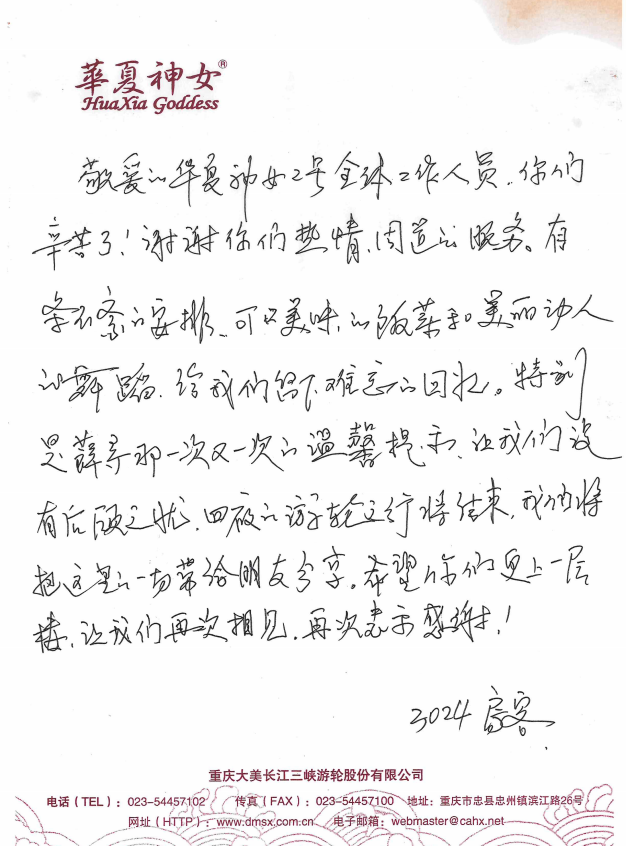 華夏神女®
HuaXia Goddess
敬爱的华夏神女2号全体工作人员，你们
辛苦了！谢谢你们热情、周道的服务。有
条不紊的安排、可口美味的饭菜和美丽动人
的舞蹈，给我们留下难忘的回忆。特别
是薛寻那一次又一次的温馨提示，让我们没
有后顾之忧，四夜的游轮之行将结束，我们将
把这里的一切带给朋友分享。希望你们更上一层
楼，让我们再次相见，再次表示感谢！
3024房客
重庆大美长江三峡游轮股份有限公司
电话（TEL）：023-54457102 传真（FAX）：023-54457100 地址：重庆市忠县忠州镇滨江路26号
网址（HTTP）：www.dmsx.com.cn 电子邮箱：webmaster@cahx.net